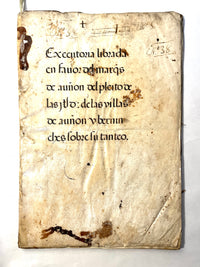 Executoria librada
en fauor del marq̃s
de auñon del pleito de
las jtbd; de las villas
de auñon y bernin
ches sobre su tanteo.